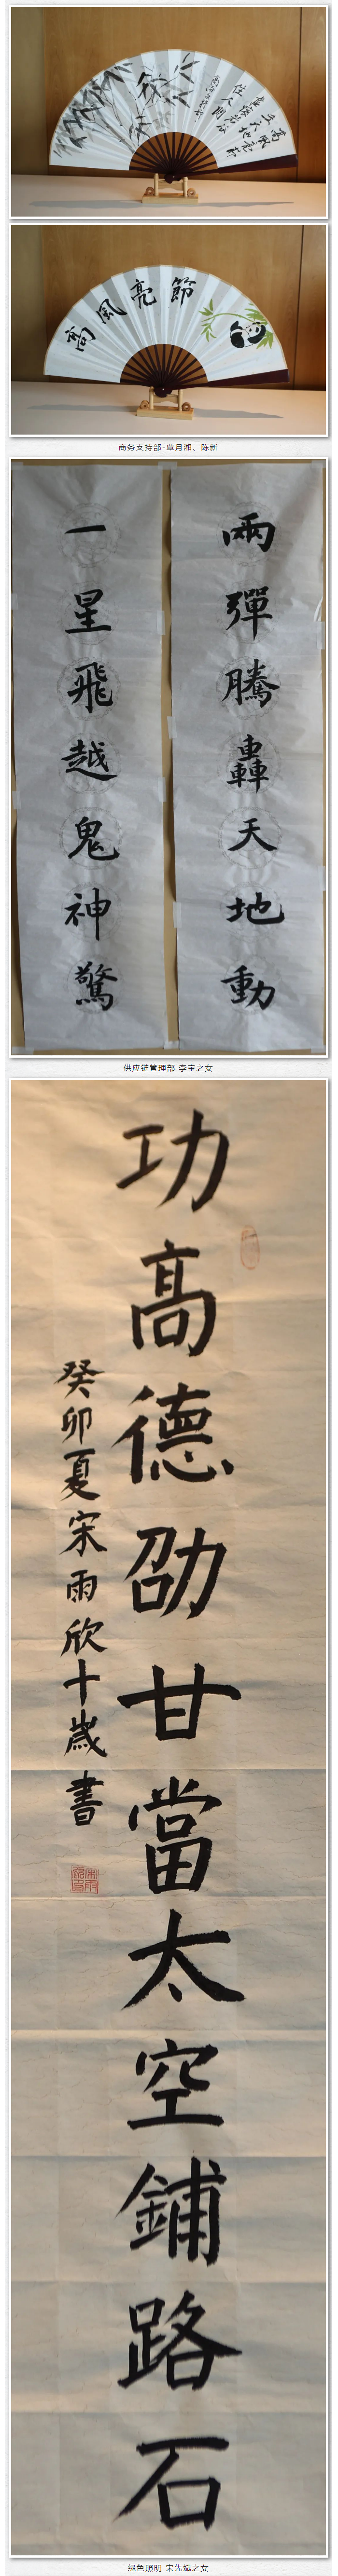 高風亮節
商务支持部-覃月湘、陈新
兩彈騰轟天地動
一星飛越鬼神驚
供应链管理部 李宝之女
功高德劭甘當太空鋪路石
癸卯夏宋雨欣十歲書
绿色照明 宋先斌之女